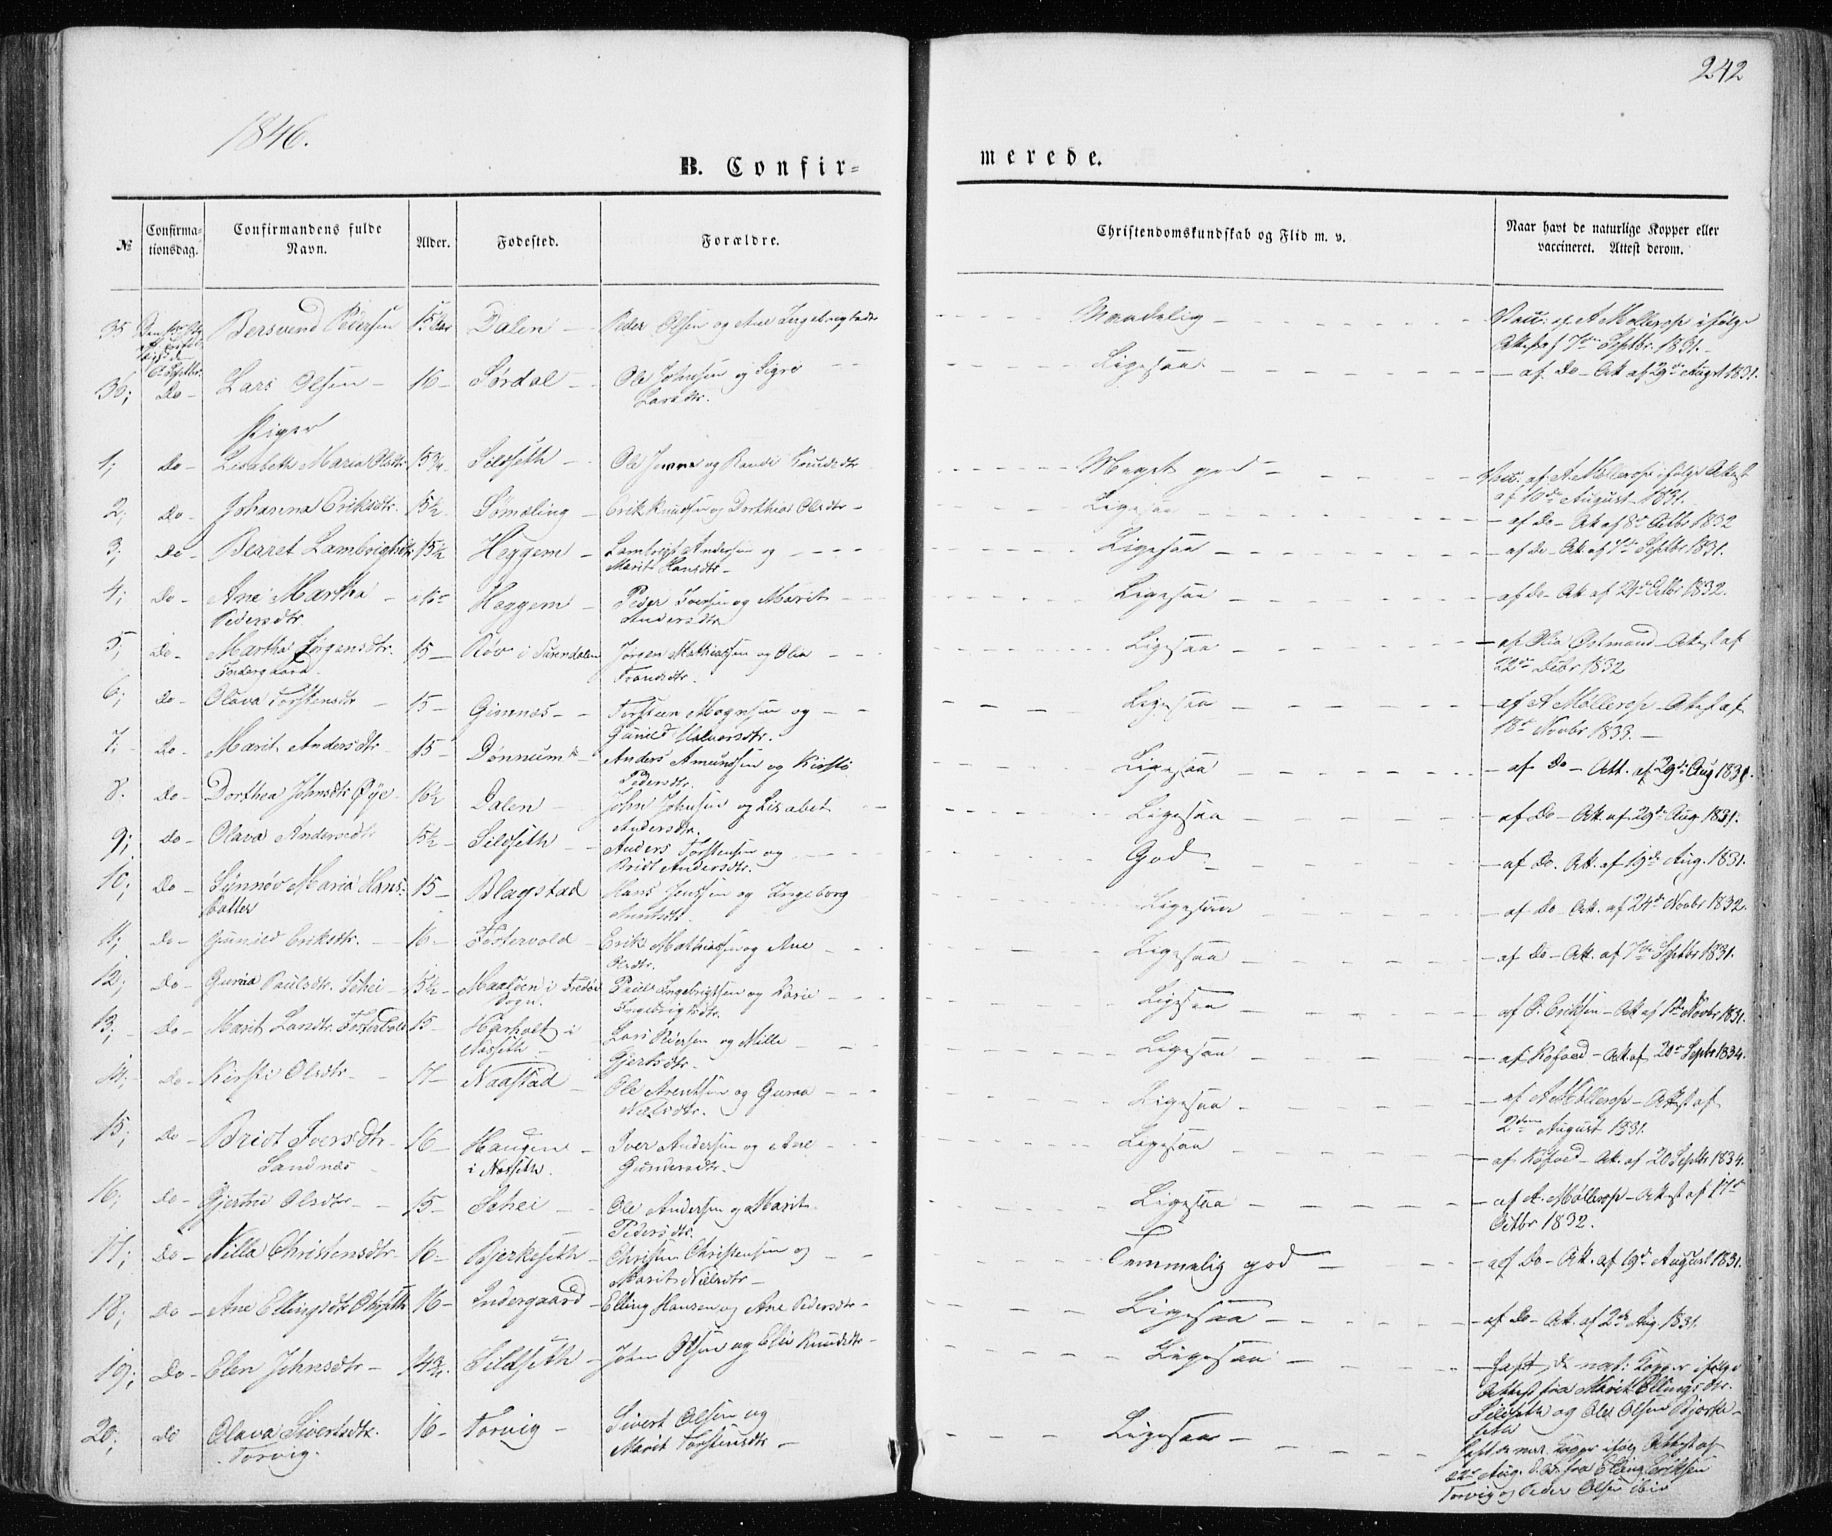 242
1846.
B. Confir-
merede.
№
Confirma-
tionsdag.
Confirmandens fulde
Navn.
Alder.
Fødested.
Forældre.
Christendomskundskab og Flid m. v.
Naar havt de naturlige Kopper eller
vaccineret. Attest derom.
35 Bersvend Pedersen 15 Aar Dalen - Peder Olsen og Ane Ingebrigtsdtr Maadelig - Vacc: af A Møllerop ifølge
Attest af 7de Septbr. 1831. -
36; Do - Lars Olsen - 16 - Sørdal - Ole Johnsen og Sigri Ligesaa - af Do - Att. af 29de Augst 1831.
Larsdtr.
Piger
1; Do - Lisabeth Maria Olsdtr 15 3/4. Silseth - Ole og Randi Knudsdtr Meget god - Vacc. af A. Møllerop ifølge Attest
af 10de August 1831.
2; Do - Johanna Eriksdtr. 15 1/2 Sømæling - Erik Knudsen og Dorthea Olsdtr - Ligesaa - af Do - Att. af 8de Octbr 1832
3; Do - Berret Lambrigtsdtr 15 1/2 Heggem - Lambrigt Andersen og Ligesaa - af Do - Att. af 7de Septbr 1831.
Marit Hansdtr -
4; Do - Ane Martha - 15 Heggem - Peder Iversen og Marit Ligesaa - af Do - Att. af 29de Octbr 1832.
Pedersdtr Andersdtr
5; Do - Martha Jørgensdtr. 15 - Røv i Surendalen Jørgen Mathiassen og Olia Ligesaa - af Ola Østmand - Attest af
Indergaard. Trondsdtr. 22de Febr 1832
6; Do - Olava Torstensdtr - 15 - Gimnes - Torsteen Mognsen og Ligesaa - af A Møllerop - Attest af
Gunild Halvorsdtr. 18de Novbr 1833. -
7; Do - Marit Andersdtr 15 - Dønnum - Anders Amundsen og Kirsti Ligesaa - af Do - Att. af 29de Aug 1831.
Pedersdtr.
8. Do - Dorthea Johnsdtr Øye - 16 1/2 Dalen - John Johnsen og Lisabet Ligesaa - af Do - Att. af 29de Aug 1831.
Andersdtr.
9; Do - Olava Andersdtr. 15 1/2 - Silseth - Anders Torstensen og God - af Do. Att. af 19de Aug. 1831.
Bridt Andersdtr.
10; Do - Synnøv Maria Hans- 15 - Blagstad Hans Jenssen og Ingeborg Ligesaa - af Do - Att. af 24de Novbr 1832.
datter
11; Do - Gunild Eriksdtr. - 16 - Fostervold - Erik Mathiassen og Ane Ligesaa - af Do - Att. af 7de Septbr 1831.
Olsdtr.
12; Do - Guraa Paulsdtr. Schei - 15 1/2 - Maaløen i Fredøe Paul Ingebrigtsen og Karie Ligesaa - af P. Eriksen - Att. af 1ste Novbr 1831.
Sogn. Ingebrigtsdtr.
13; Do - Marit Larsdtr. 15 - i Lars Pedersen og Mille Ligesaa - af Kofoed - Att. af 20de Septbr 1834.
Næsseth - Gjertsdtr.
14; Do - Kirsti Olsdtr - 17 - Naastad - Ole Arentsen og Guraa Ligesaa - af A Møllerop - Attest af
Nielsdtr. 2den August 1831.
15; Do - Bridt Iversdtr - 16 - Haugen - Iver Andersen og Ane Ligesaa - af Kofoed - Att. af 20 Septbr 1834.
Sandnæs - i Næsseth. Gundersdtr.
16; Do - Gjertru Olsdtr - 15 - Schei - Ole Andersen og Marit Ligesaa - af A. Møllerop - Attest af 17de
Pedersdtr. Octbr 1832.
17; Do - Nille Christensdtr 16 - Bjerkeseth - Christen Christensen og Temmelig god - af Do - Att. af 19de August 1831.
Marit Nielsdtr -
18; Do - Ane Ellingsdtr 16 - Indergaard - Elling Hansen og Ane Pedersdtr - Ligesaa - af Do - Att. af 2de Aug. 1831.
19; Do - Elen Johnsdtr - 14 3/4. Sildseth - John Olsen og Elie Knudsdtr - Ligesaa - havt de nat: Kopper ifølge
Attest fra Marit Ellingsdtr.
Silseth og Ole Olsen Bjerke-
seth
20; do Olava Sivertsdtr. 16 - Torvig - Sivert Olsen og Ligesaa - havt de nat. Kopper ifølg. Attest af
Torvig. Marit Torstensdtr - 22de Aug. d. A. fra Elling Eriksen
Torvig og Peder Olsen ibid